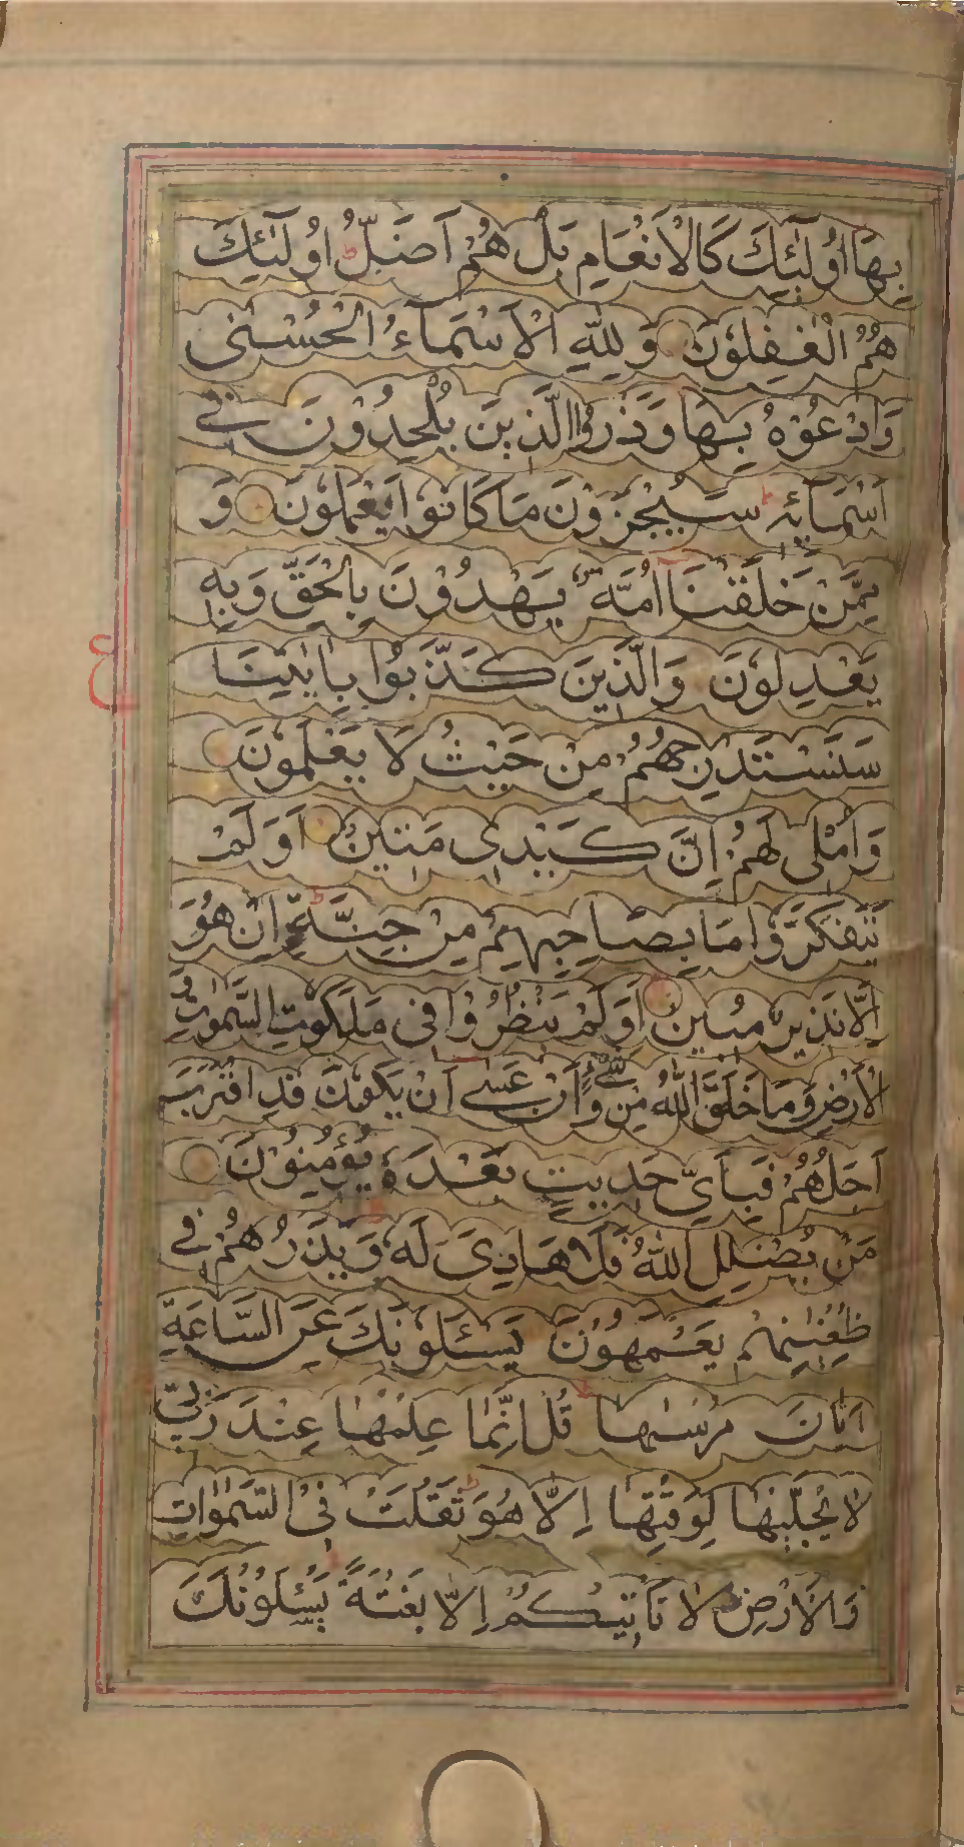 بِهَا اُولٰٓئِكَ كَالْاَنْعَامِ بَلْ هُمْ اَضَلُّ ط اُولٰٓئِكَ
هُمُ الْغٰفِلُوْنَ وَلِلّٰهِ الْاَسْمَآءُ الْحُسْنٰى
وَادْعُوْهُ بِهَا وَذَرُوا الَّذِيْنَ يُلْحِدُوْنَ فِىْ
اَسْمَآئِهٖ ط سَيُجْزَوْنَ مَا كَانُوْا يَعْمَلُوْنَ وَ
مِمَّنْ خَلَقْنَا اُمَّةٌ يَّهْدُوْنَ بِالْحَقِّ وَبِهٖ
ع
يَعْدِلُوْنَ وَالَّذِيْنَ كَذَّبُوْا بِاٰيٰتِنَا
سَنَسْتَدْرِجُهُمْ مِنْ حَيْثُ لَا يَعْلَمُوْنَ
وَاُمْلِىْ لَهُمْ اِنَّ كَيْدِىْ مَتِيْنٌ اَوَلَمْ
يَتَفَكَّرُوْا مَا بِصَاحِبِهِمْ مِنْ جِنَّةٍ ط اِنْ هُوَ
اِلَّا نَذِيْرٌ مُبِيْنٌ اَوَلَمْ يَنْظُرُوْا فِىْ مَلَكُوْتِ السَّمٰوٰتِ وَ
الْاَرْضِ وَمَا خَلَقَ اللّٰهُ مِنْ شَىْءٍ وَّاَنْ عَسٰى اَنْ يَكُوْنَ قَدِ اقْتَرَبَ
اَجَلُهُمْ فَبِاَىِّ حَدِيْثٍ بَعْدَهٗ يُؤْمِنُوْنَ
مَنْ يُضْلِلِ اللّٰهُ فَلَا هَادِىَ لَهٗ وَيَذَرُهُمْ فِىْ
طُغْيٰنِهِمْ يَعْمَهُوْنَ يَسْئَلُوْنَكَ عَنِ السَّاعَةِ
اَيَّانَ مُرْسٰىهَا ط قُلْ اِنَّمَا عِلْمُهَا عِنْدَ رَبِّىْ
لَا يُجَلِّيْهَا لِوَقْتِهَا اِلَّا هُوَ ط ثَقُلَتْ فِى السَّمٰوَاتِ
وَالْاَرْضِ لَا تَاْتِيْكُمْ اِلَّا بَغْتَةً يَسْئَلُوْنَكَ